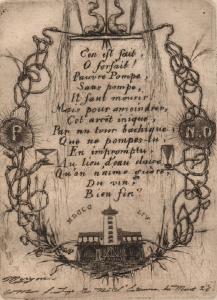 C'en est fait,
O forfait!
Pauvre Pompe,
Sans pompe,
Il faut mourir!
Mais pour amoindrir,
Cet arrêt inique,
Par un tour bachique,
Que ne pompes-tu,
En impromptu,
Au lieu d'eau claire
Qu'on n'aime guère,
Du vin,
Bien fin?
P
N.D
MDCCC
LIV